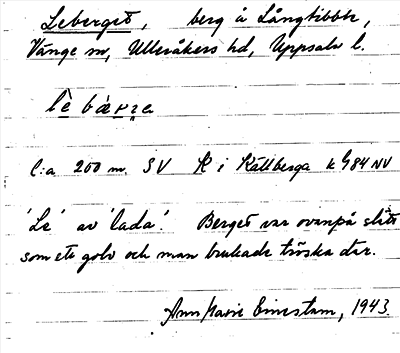 Leberget, berg å Långtibble,
Vänge sn, Ulleråkers hd, Uppsala l.
lè bàrre
C:a 200 m. SV K i Källberga k 984 NV
'Le' av 'lada'. Berget var ovanpå slätt
som ett golv och man brukade tröska där.
Ann Marie Einestam, 1943